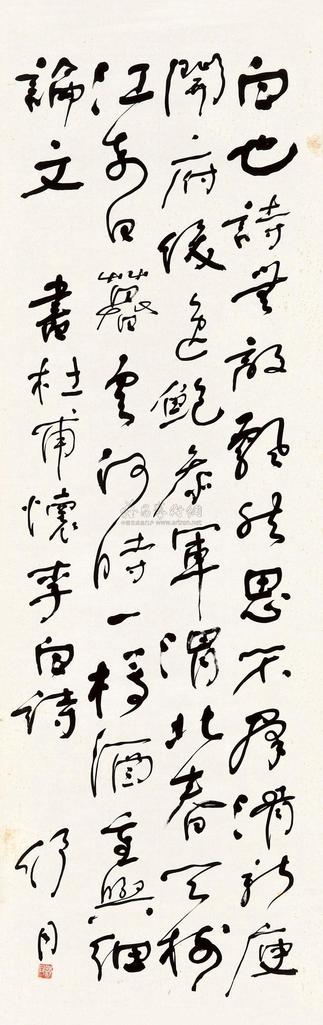 白也詩無敵飄然思不群清新庾
開府俊逸鮑參軍渭北春天樹
江東日暮云何時一樽酒重與細
論文 書杜甫懷李白詩
www.artron.net